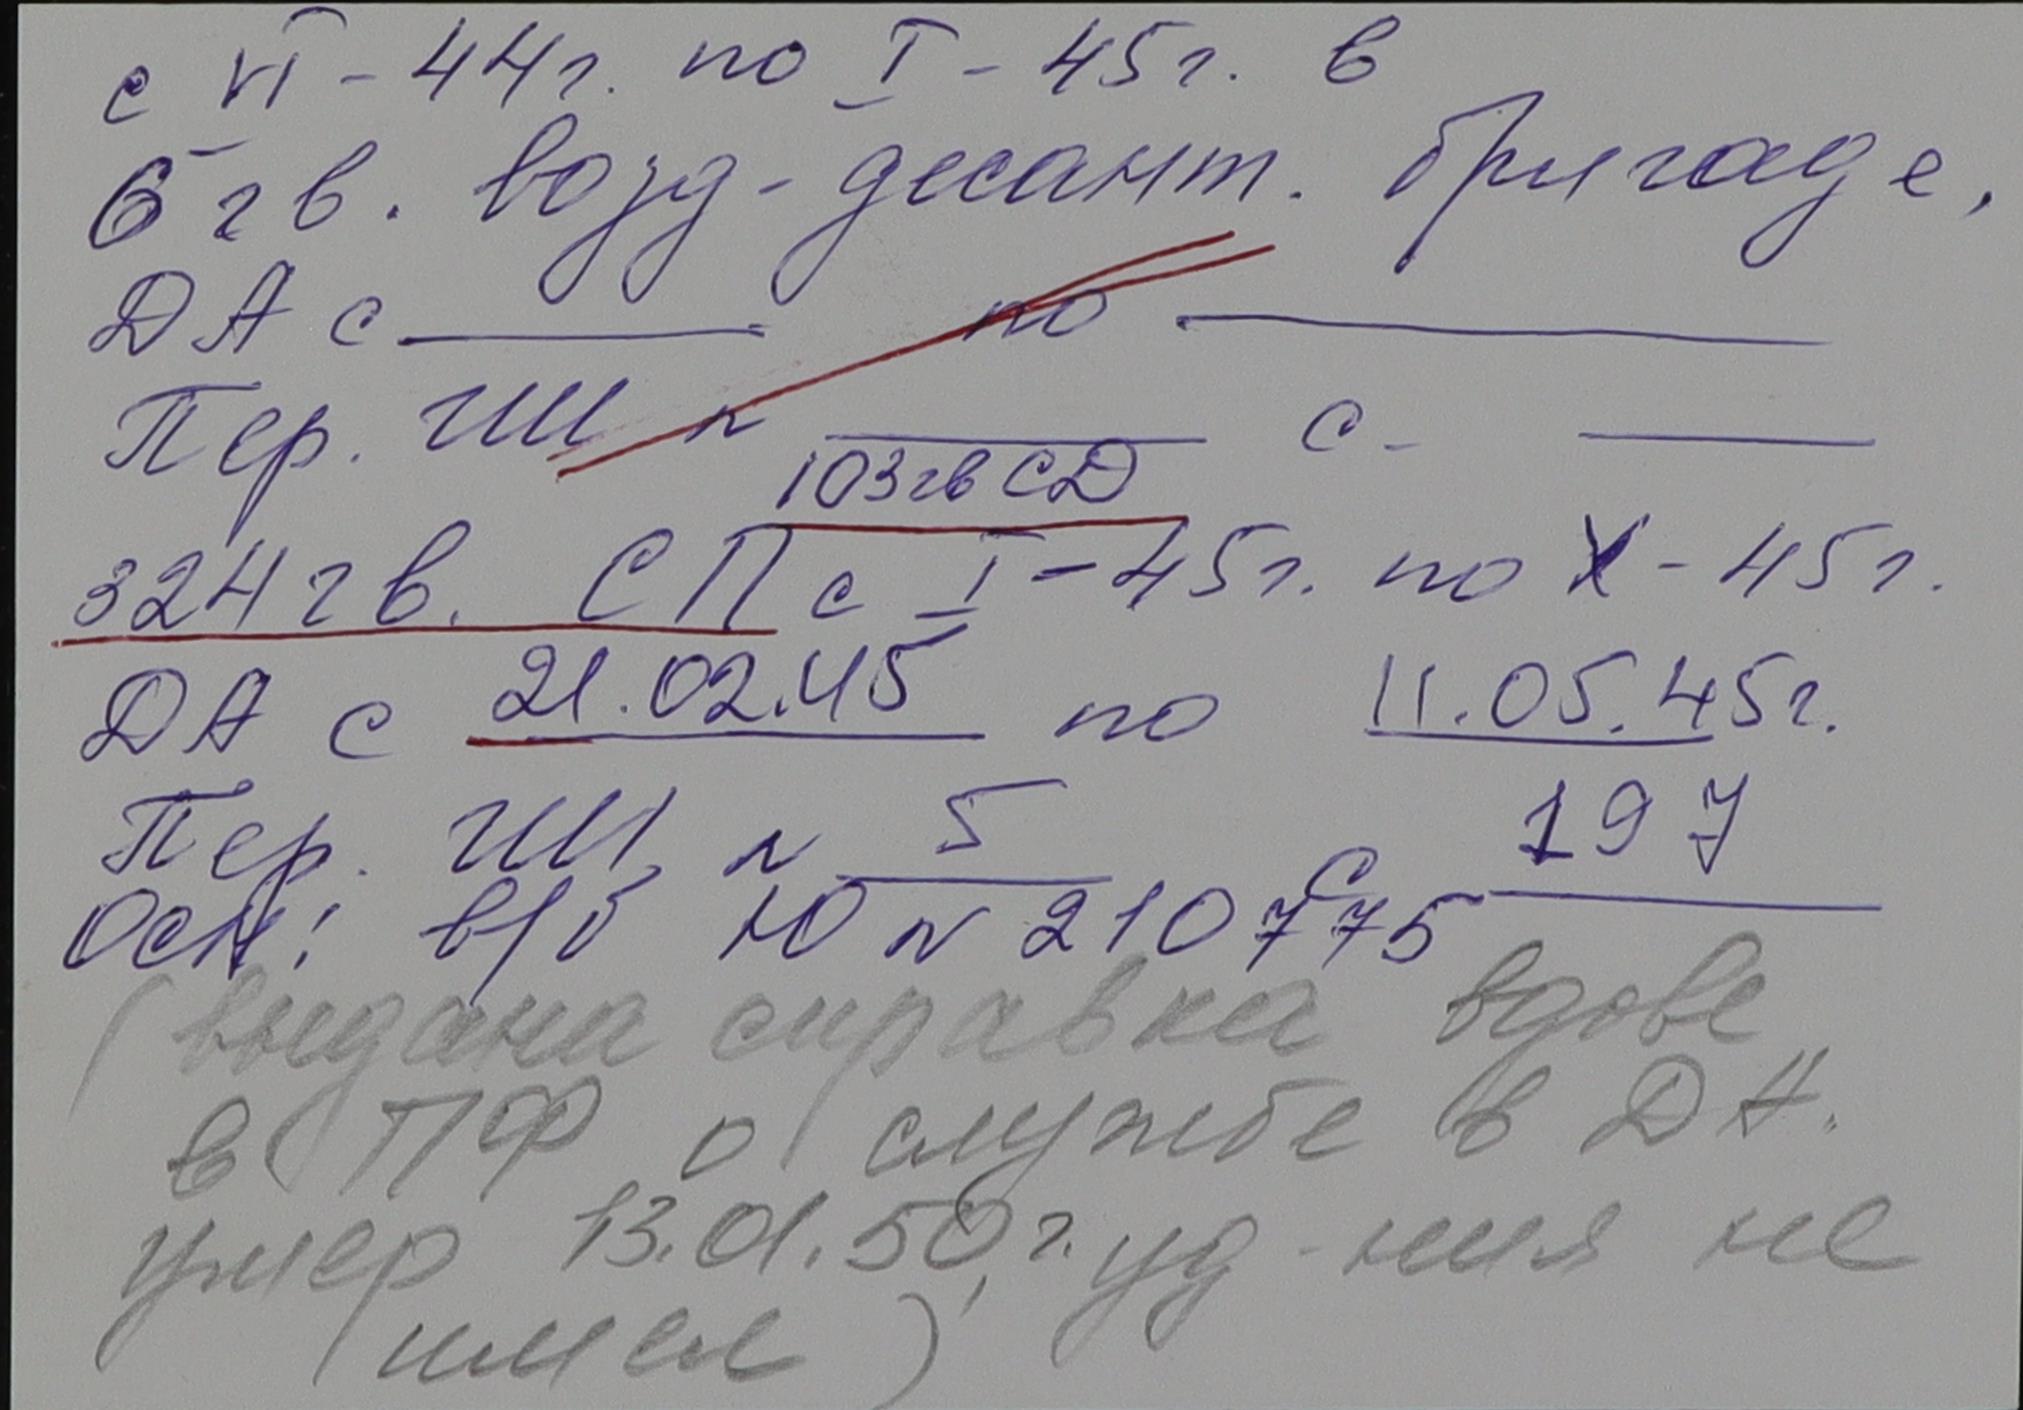 с VI - 44г. по I - 45г. в
6 гв. возд-десант. бригаде,
ДА с ______ по ______
Пер. ГШ № ______ с- ______
103гв СД
324 гв. СП с I - 45г. по X - 45г.
ДА с 21.02.45 по 11.05.45г.
Пер. ГШ № 5 с 197
Осн: в/б Ю № 210775
(выдана справка вдове
в ПФ о службе в ДА.
умер 13.01.50 г., уд-ния не
имел)